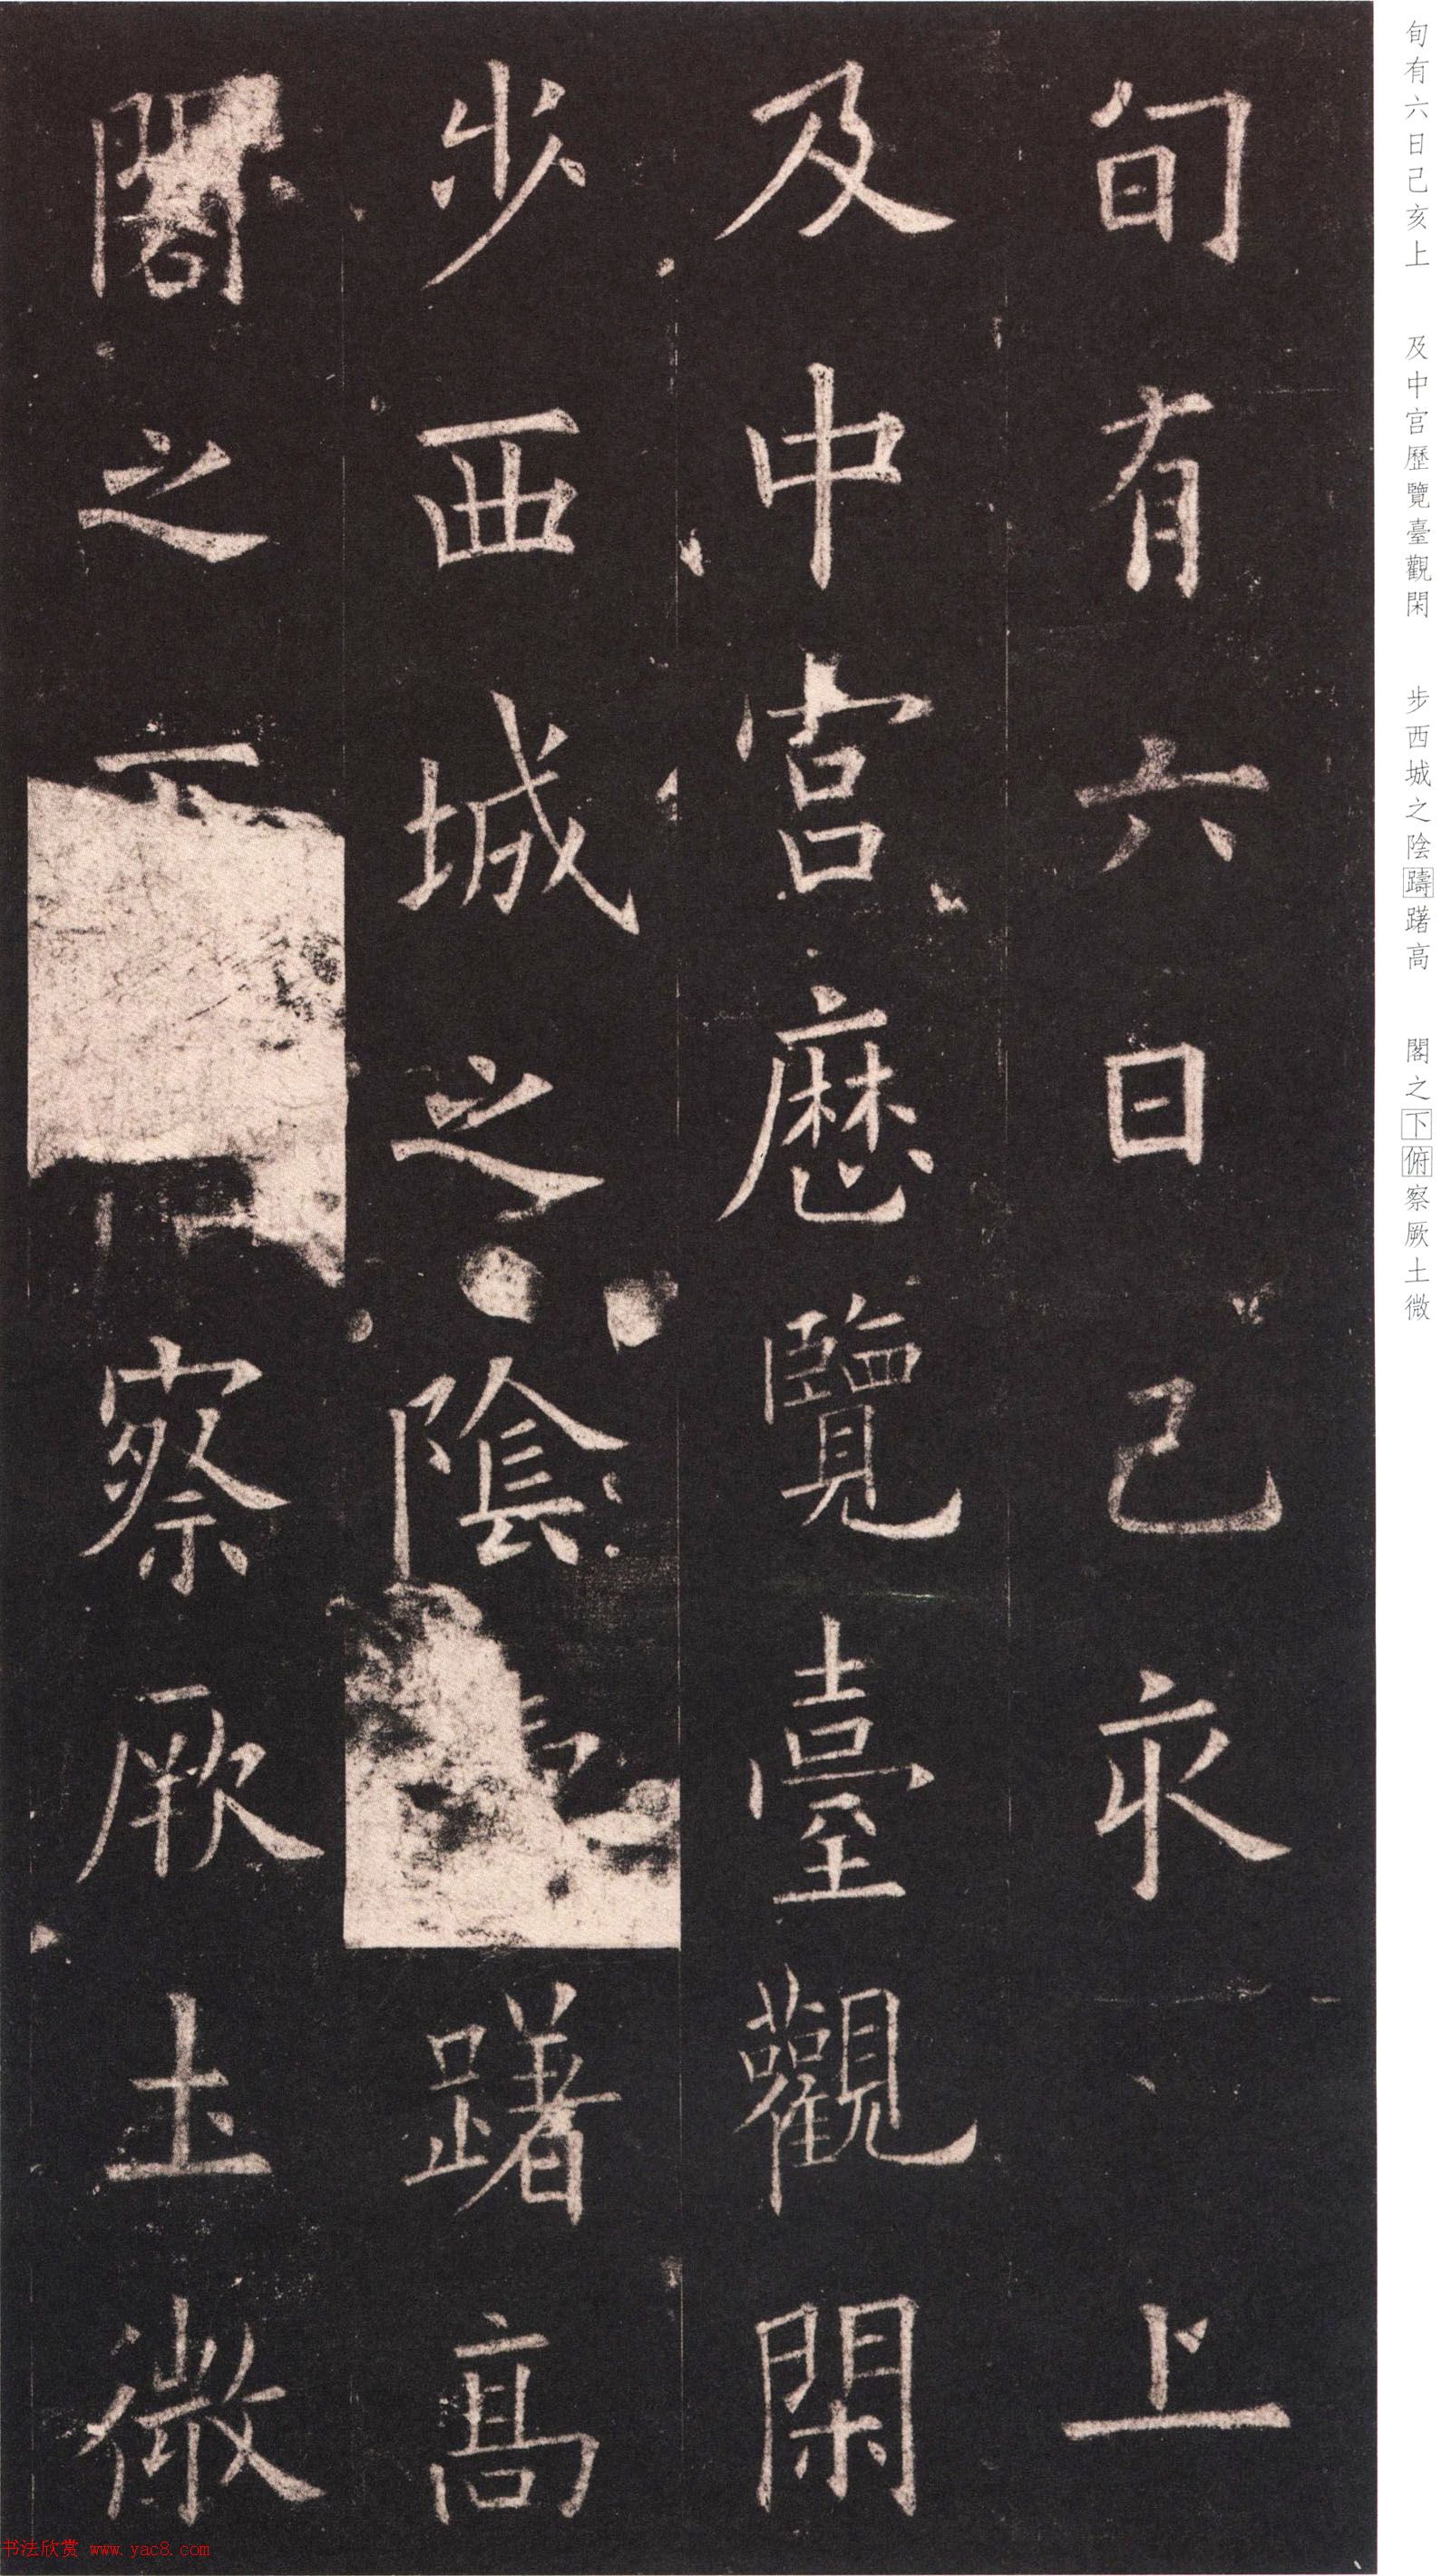 旬有六日己亥上
及中宫歷覽臺觀閑
步西城之陰躇高
閣之下察厥土微
旬有六日己亥上 及中宫歷覽臺觀閑 步西城之陰躊躇高 閣之下俯察厥土微
书法欣赏 www.yac8.com